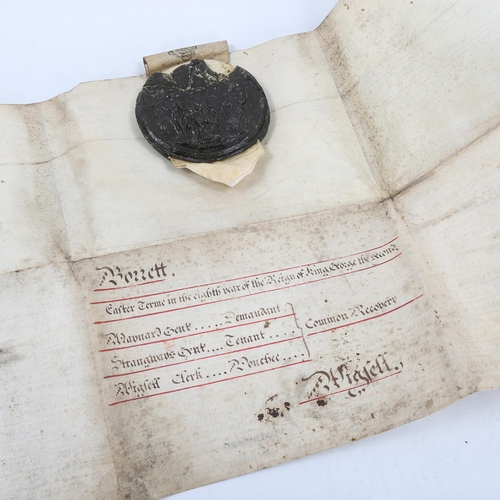 Borrett.
Easter Terme in the eighth year of the Reign of King George the second.
Maynard Gent ..... Demandant
Strangways Gent .... Tenant ....
Common Recovery
Wigsell Clerk .... Vouchee ....
Wigsell.